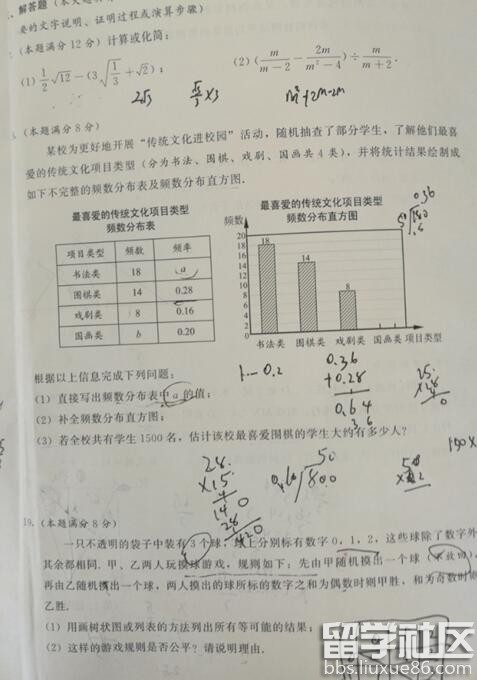 解答题
要的文字说明、证明过程或演算步骤)
(本题满分 12 分) 计算或化简:
(1) 1/2 √12 − (3√(1/3) + √2);
(2) (m/(m−2) − 2m/(m²−4)) ÷ m/(m+2).
2√3
×3
m²+2m-2m
(本题满分 8 分)
某校为更好地开展“传统文化进校园”活动,随机抽查了部分学生,了解他们最喜
爱的传统文化项目类型(分为书法、围棋、戏剧、国画共 4 类),并将统计结果绘制成
如下不完整的频数分布表及频数分布直方图.
最喜爱的传统文化项目类型
频数分布表
项目类型 频数 频率
书法类 18 a
围棋类 14 0.28
戏剧类 8 0.16
国画类 b 0.20
最喜爱的传统文化项目类型
频数分布直方图
频数
20
18
16
14
12
10
8
6
4
2
0
18
14
8
书法类 围棋类 戏剧类 国画类 项目类型
0.36
50
180
根据以上信息完成下列问题:
(1) 直接写出频数分布表中 a 的值;
(2) 补全频数分布直方图;
(3) 若全校共有学生 1500 名,估计该校最喜爱围棋的学生大约有多少人?
1-0.2
0.36
+0.28
0.64
36
28
×15
14 0
28
420
50
0.16
800
19. (本题满分 8 分)
一只不透明的袋子中装有 3 个球,球上分别标有数字 0,1,2,这些球除了数字外
其余都相同.甲、乙两人玩摸球游戏,规则如下:先由甲随机摸出一个球(不放回),
再由乙随机摸出一个球,两人摸出的球所标的数字之和为偶数时则甲胜,和为奇数时则
乙胜.
(1) 用画树状图或列表的方法列出所有等可能的结果;
(2) 这样的游戏规则是否公平?请说明理由.
留学社区
bbs.liuxue86.com